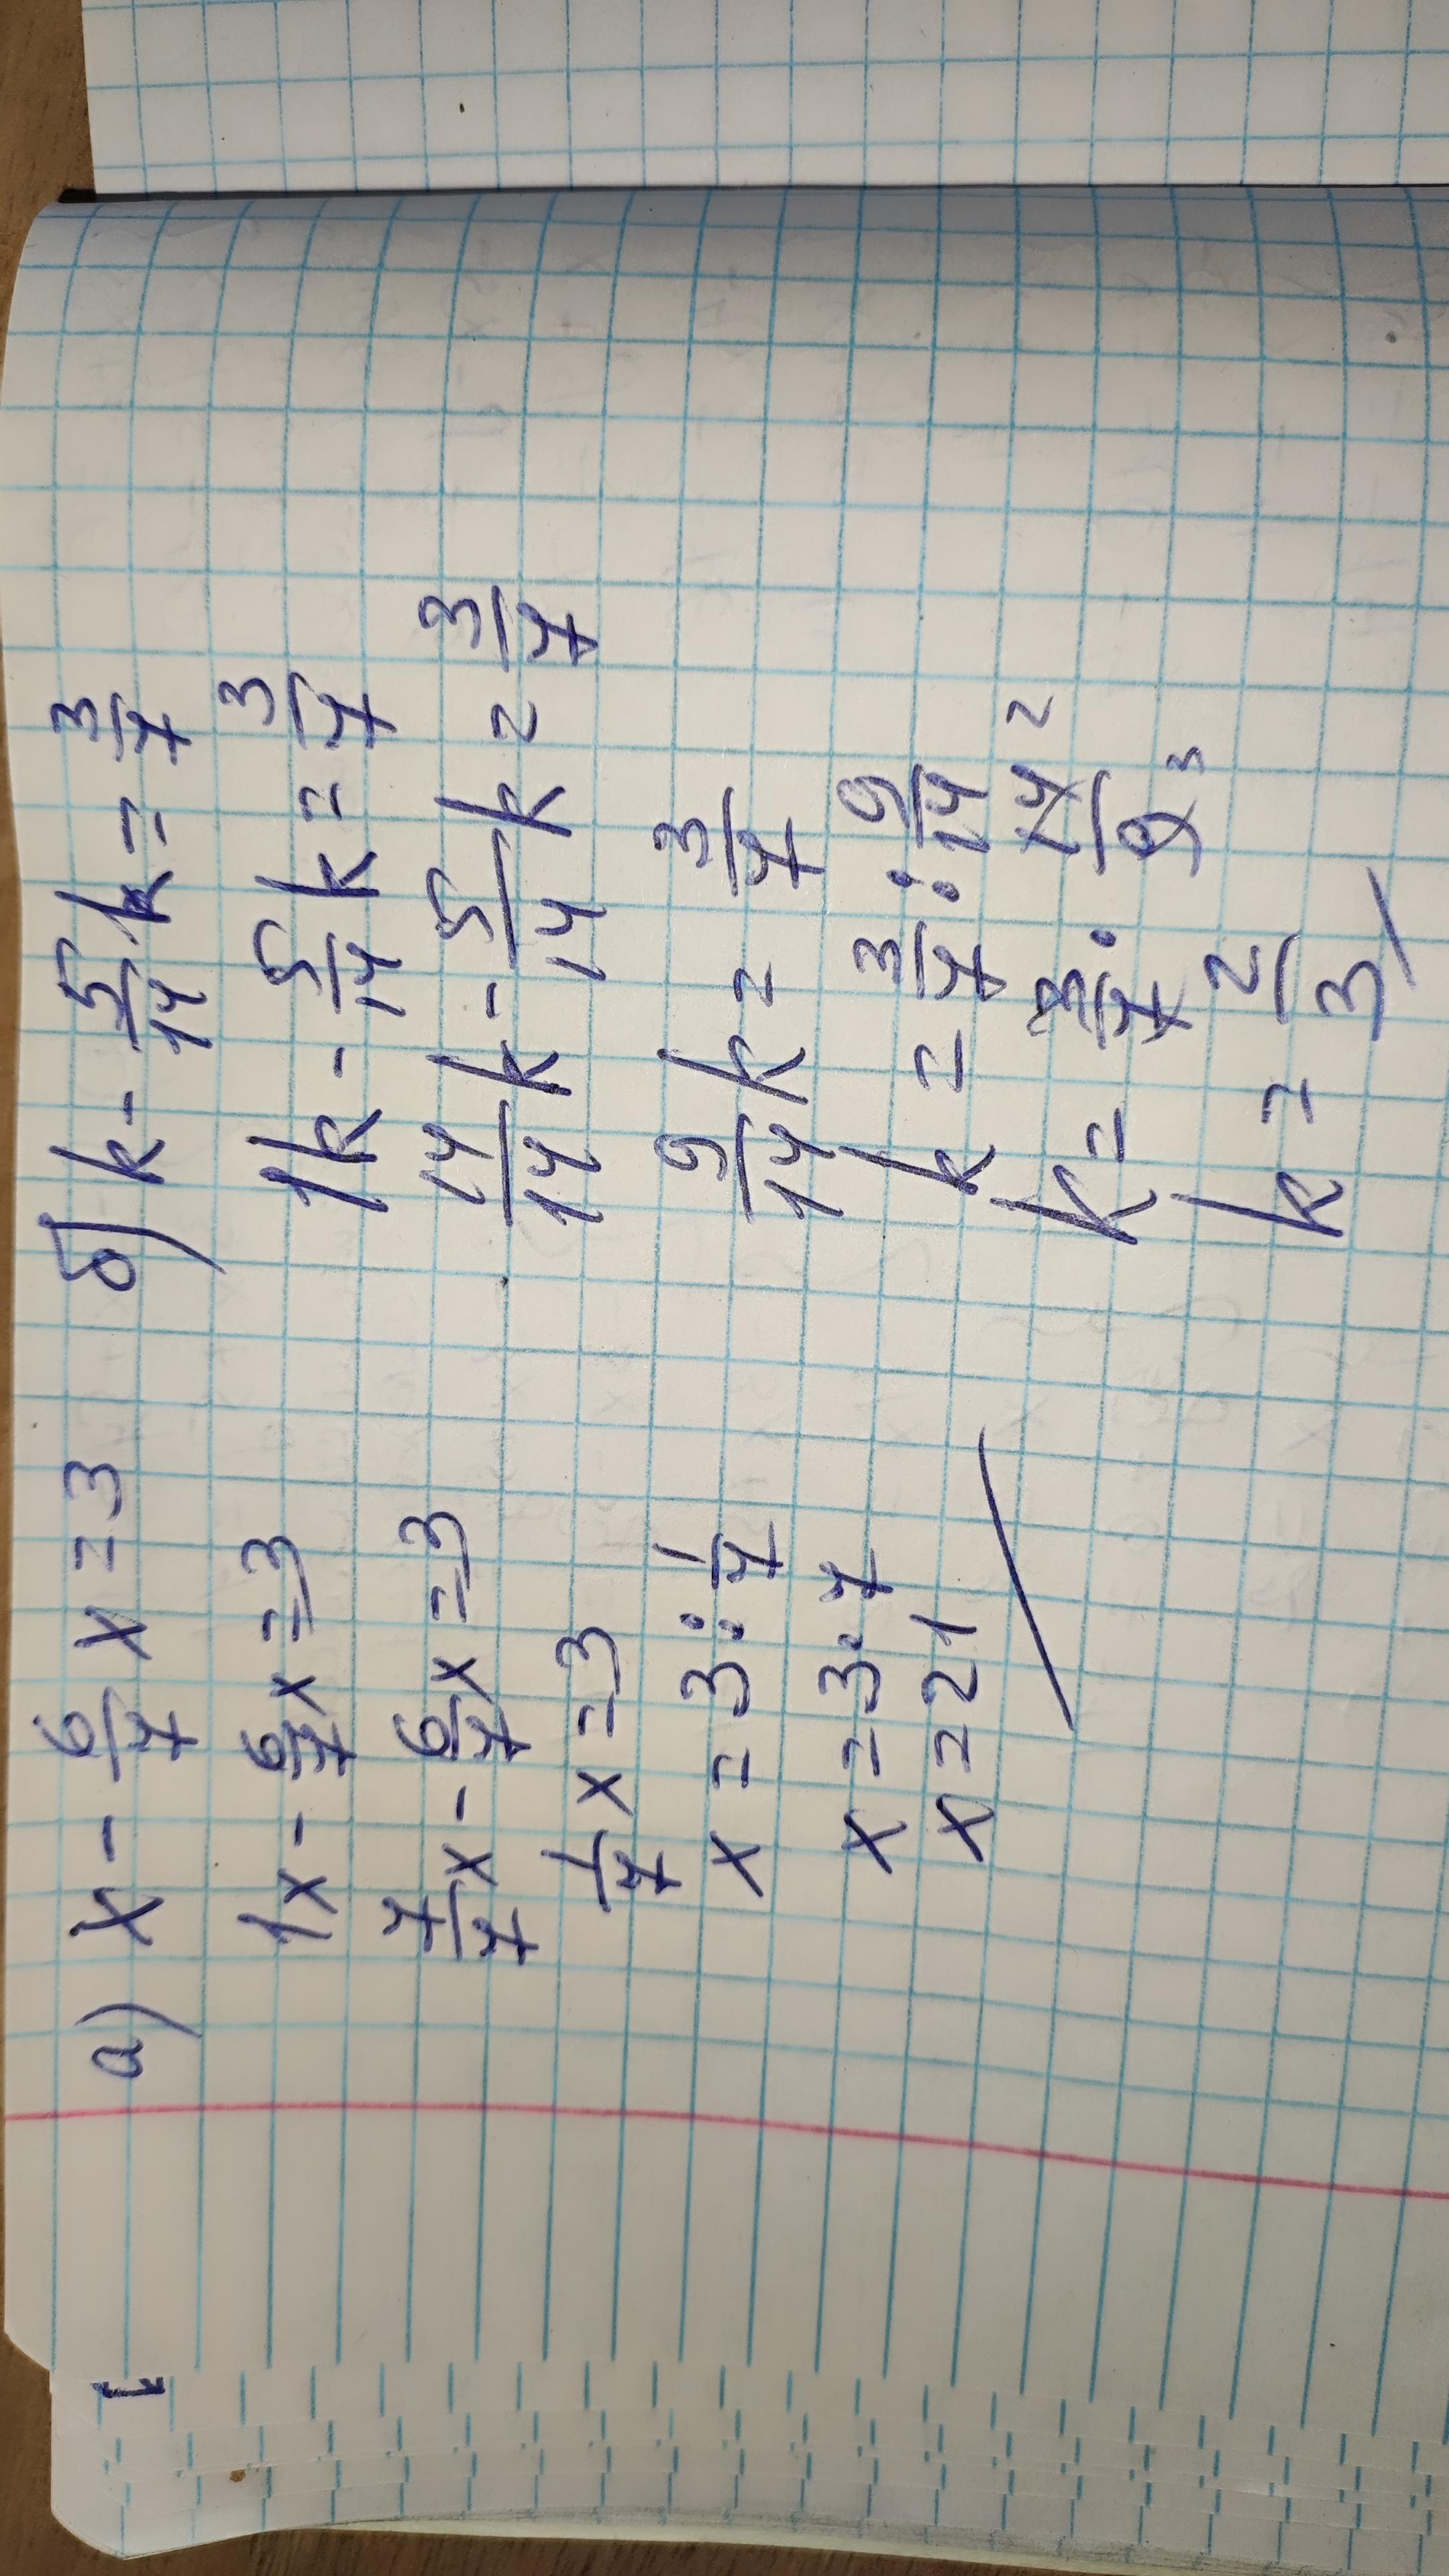 а) x - 6/7 x = 3
1x - 6/7 x = 3
7/7 x - 6/7 x = 3
1/7 x = 3
x = 3 : 1/7
x = 3 · 7
x = 21
б) k - 5/14 k = 3/7
1k - 5/14 k = 3/7
14/14 k - 5/14 k = 3/7
9/14 k = 3/7
k = 3/7 : 9/14
k = 3/7 · 14/9 2 3
k = 2/3